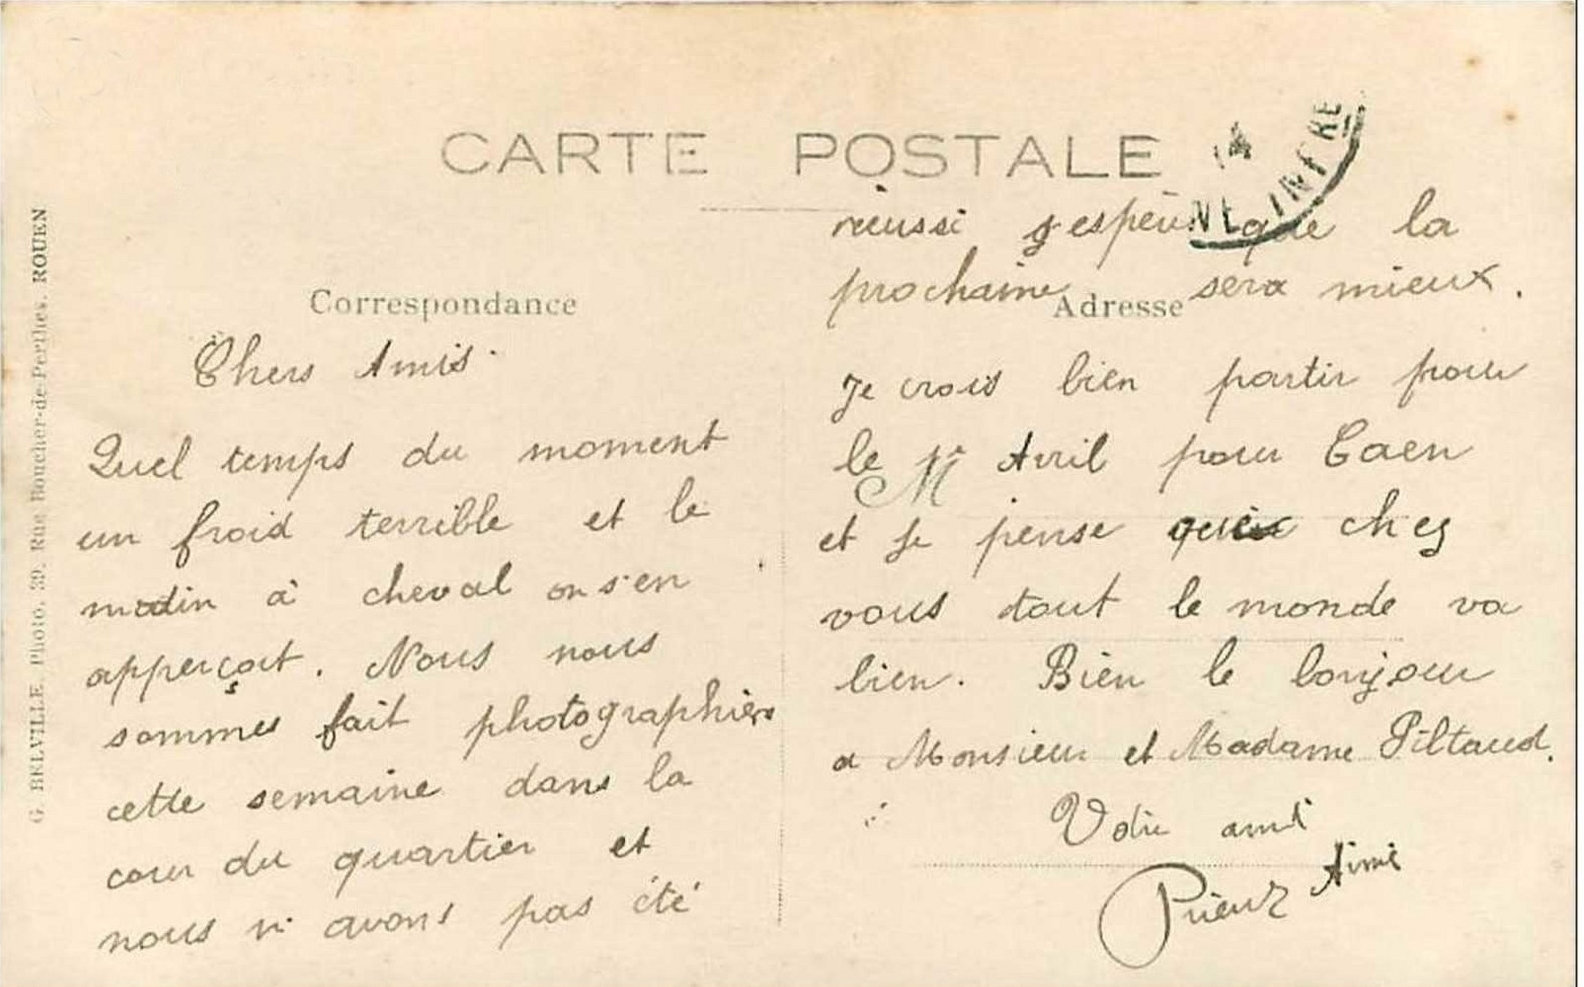 CARTE POSTALE
Correspondance
Chers Amis.
Quel temps du moment
un froid terrible et le
matin à cheval on s'en
apperçoit. Nous nous
sommes fait photographiers
cette semaine dans la
cour du quartier et
nous n'avons pas été
réussi j'espère que la
prochaine sera mieux.
Adresse
Je crois bien partir pour
le Avril pour Caen
et je pense que chez
vous tout le monde va
bien. Bien le bonjour
a Monsieur et Madame Piltaud.
Votre ami
Aimé
M
14
NE INFRE
G. BELVILLE, Photo, 39, Rue Boucher-de-Perthes, ROUEN